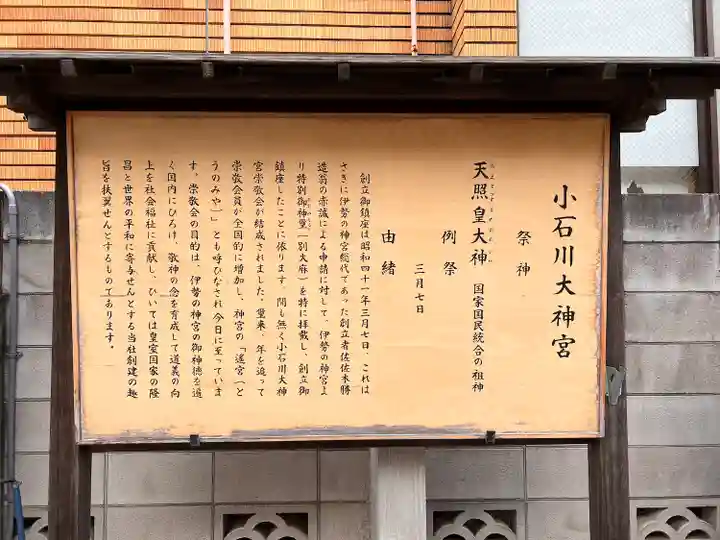 小石川大神宮
祭神
天照皇大神 国家国民統合の祖神
例祭
三月七日
由緒
創立御鎮座は昭和四十一年三月七日、これは
さきに伊勢の神宮総代であった創立者佐佐木勝
造翁の赤誠による申請に対して、伊勢の神宮よ
り特別御神璽「別大麻」を特に拝戴し、創立御
鎮座したことに依ります。間も無く小石川大神
宮崇敬会が結成されました。爾来、年を追って
崇敬会員が全国的に増加し、神宮の「遥宮(と
うのみや)」とも呼びなされ今日に至っていま
す。崇敬会の目的は、伊勢の神宮の御神徳を遍
く国内にひろげ、敬神の念を育成して道義の向
上を社会福祉に貢献し、ひいては皇室国家の隆
昌と世界の平和に寄与せんとする当社創建の趣
旨を扶翼せんとするものであります。